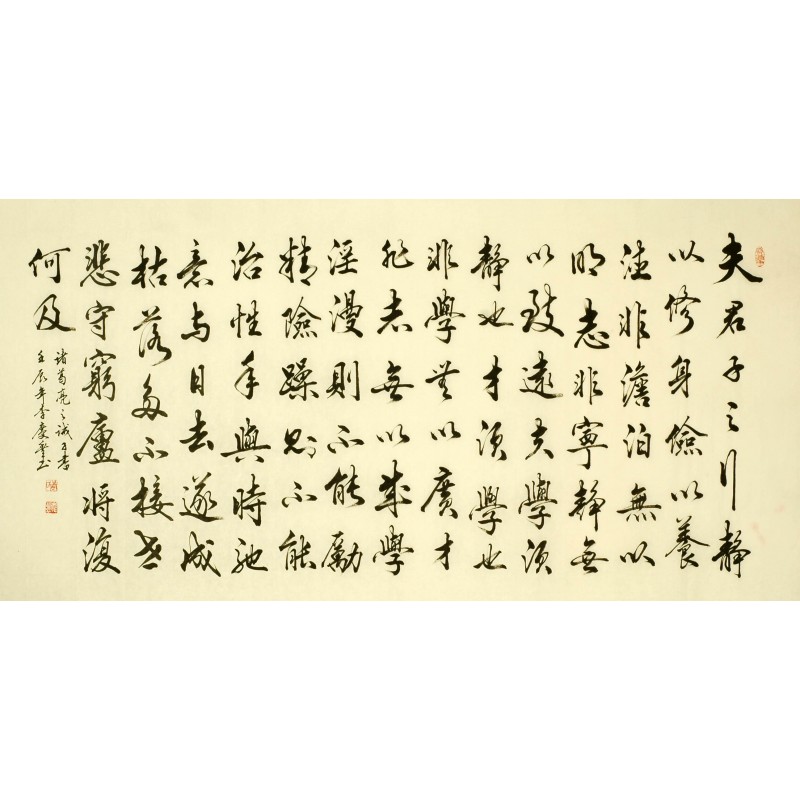 夫君子之行靜
以修身儉以養
德非澹泊無以
明志非寧靜無
以致遠夫學須
靜也才須學也
非學無以廣才
非志無以成學
淫漫則不能勵
精險躁則不能
治性年與時馳
意与日去遂成
枯落多不接世
悲守窮廬將復
何及
諸葛亮之誡子書
壬辰年李慶